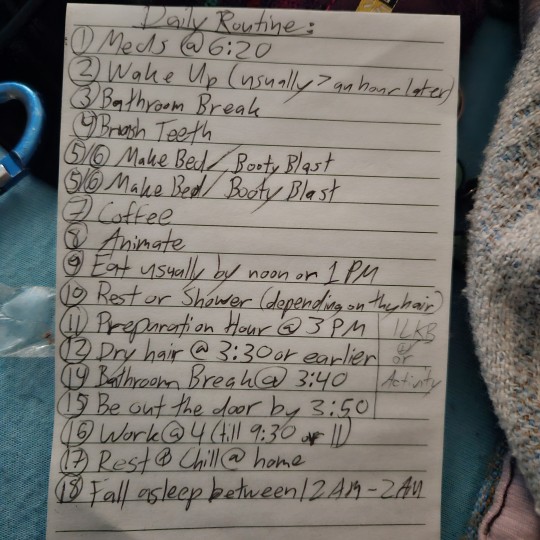 Daily Routine:
① Meds @ 6:20
② Wake Up (usually > an hour later)
③ Bathroom Break
④ Brush Teeth
⑤/⑥ Make Bed/ Booty Blast
⑤/⑥ Make Bed/ Booty Blast
⑦ Coffee
⑧ Animate
⑨ Eat usually by noon or 1 PM
⑩ Rest or Shower (depending on thy hair)
⑪ Preparation Hour @ 3 PM
⑫ Dry hair @ 3:30 or earlier
⑭ Bathroom Break @ 3:40
⑮ Be out the door by 3:50
or
Activity
⑯ Work @ 4 (till 9:30 or 11)
⑰ Rest & Chill @ home
⑱ Fall asleep between 12 AM - 2 AM